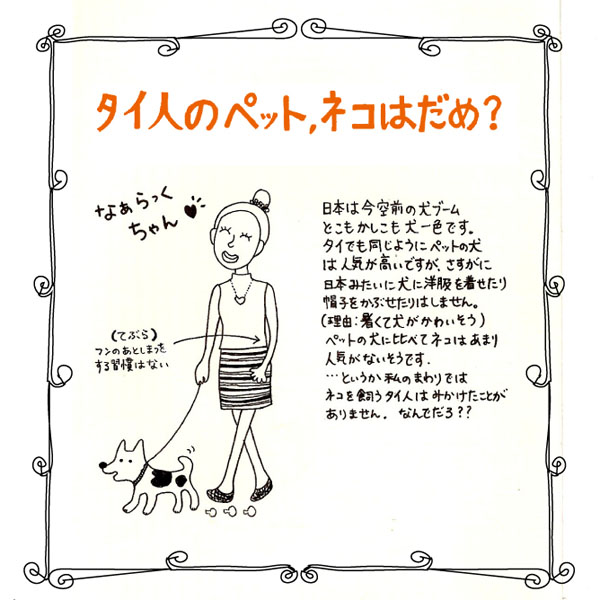 タイ人のペット,ネコはだめ?
なぁらっく
ちゃん
(てぶら)
フンのあとしまつを
する習慣はない
日本は今空前の犬ブーム
どこもかしこも犬一色です。
タイでも同じようにペットの犬
は人気が高いですが、さすがに
日本みたいに犬に洋服を着せたり
帽子をかぶせたりはしません。
(理由:暑くて犬がかわいそう)
ペットの犬に比べてネコはあまり
人気がないそうです。
…というか私のまわりでは
ネコを飼うタイ人はみかけたことが
ありません。なんでだろ??